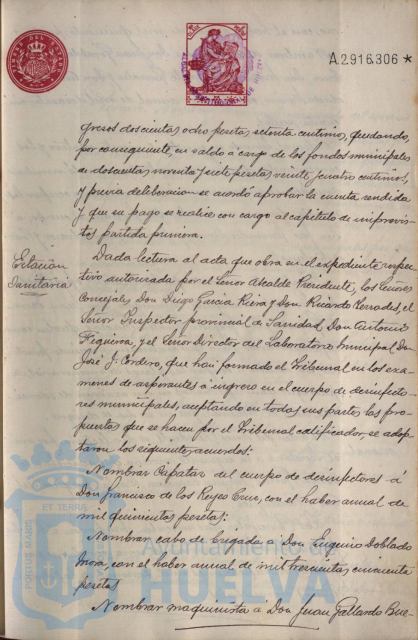 A2916306 *
gresos doscientas ocho pesetas setenta centimos, quedando,
por consequiente, un saldo a cargo de los fondos municipales
de doscientas noventa y siete pesetas veinte y cuatro centimos,
y previa deliberacion se acordó aprobar la cuenta rendida
y que su pago se realice con cargo al capitulo de imprevis-
tos partida primera.
Estación
Sanitaria
Dada lectura al acta que obra en el expediente respec-
tivo autorizada por el Señor Alcalde Presidente, los Señores
Concejales Don Diego Garcia Riera y Don Ricardo Terrades, el
Señor Inspector provincial de Sanidad Don Antonio
Figueroa, y el Señor Director del Laboratorio Municipal Don
José J. Cordero, que han formado el Tribunal en los exa-
menes de aspirantes a ingreso en el cuerpo de desinfecto-
res municipales, aceptando en todas sus partes las pro-
puestas que se hacen por el Tribunal calificador, se adop-
taron los siguientes acuerdos:
Nombrar Capataz del cuerpo de desinfectores á
Don Francisco de los Reyes Cruz, con el haber anual de
mil quinientas pesetas;
Nombrar cabo de brigada a Don Eugenio Doblado
Mora, con el haber anual de mil trescientas cincuenta
pesetas
Nombrar maquinista á Don Juan Gallardo Bue-
PORTUS MARIS ET TERRAE
Ayuntamiento de
HUELVA